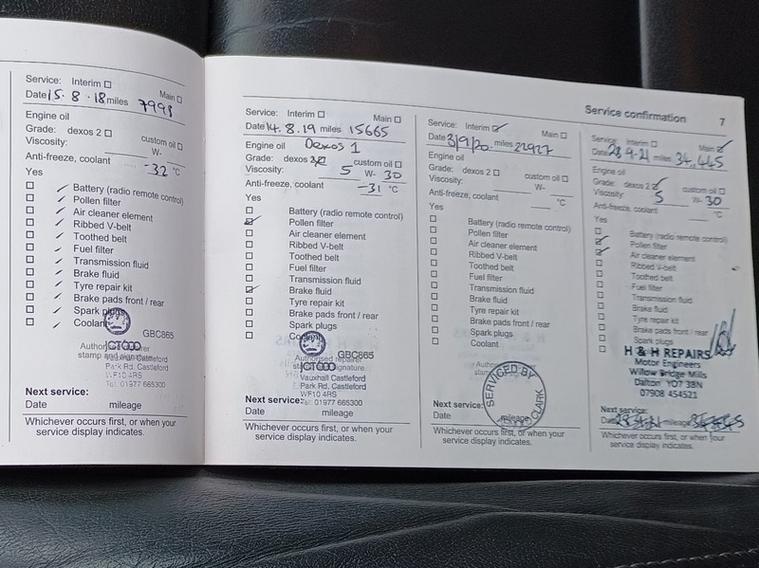 Service: Interim
Main
Date 15.8.18 miles 7998
Engine oil
Grade: dexos 2
custom oil
Viscosity:
W-
Anti-freeze, coolant
-32 °C
Yes
Battery (radio remote control)
Pollen filter
Air cleaner element
Ribbed V-belt
Toothed belt
Fuel filter
Transmission fluid
Brake fluid
Tyre repair kit
Brake pads front / rear
Spark plugs
Coolant
GBC865
JCT600
stamp and signature
Castleford
Park Rd, Castleford
WF10 4RS
Tel: 01977 665300
Next service:
Date mileage
Whichever occurs first, or when your
service display indicates.
Service: Interim
Main
Date 14.8.19 miles 15665
Engine oil Dexos 1
Grade: dexos
custom oil
Viscosity: 5 W- 30
Anti-freeze, coolant -31 °C
Yes
Battery (radio remote control)
Pollen filter
Air cleaner element
Ribbed V-belt
Toothed belt
Fuel filter
Transmission fluid
Brake fluid
Tyre repair kit
Brake pads front / rear
Spark plugs
GBC865
Authorised repairer
JCT600 signature
Vauxhall Castleford
Park Rd, Castleford
WF10 4RS
Next service: 01977 665300
Date mileage
Whichever occurs first, or when your
service display indicates.
Service: Interim
Main
Date 3/9/20 miles 22927
Engine oil
Grade: dexos 2
custom oil
Viscosity:
W-
Anti-freeze, coolant
°C
Yes
Battery (radio remote control)
Pollen filter
Air cleaner element
Ribbed V-belt
Toothed belt
Fuel filter
Transmission fluid
Brake fluid
Tyre repair kit
Brake pads front / rear
Spark plugs
Coolant
SERVICED BY
CLARK
Next service:
Date mileage
Whichever occurs first, or when your
service display indicates.
Service confirmation 7
Service: Interim
Main
Date 28.9.21 miles 34,445
Engine oil
Grade: dexos 2
custom oil
Viscosity: 5 W- 30
Anti-freeze, coolant
°C
Yes
Battery (radio remote control)
Pollen filter
Air cleaner element
Ribbed V-belt
Toothed belt
Fuel filter
Transmission fluid
Brake fluid
Tyre repair kit
Brake pads front / rear
Spark plugs
H & H REPAIRS
Motor Engineers
Willow Bridge Mills
Dalton YO7 3BN
07908 454521
Next service:
Date mileage
Whichever occurs first, or when your
service display indicates.